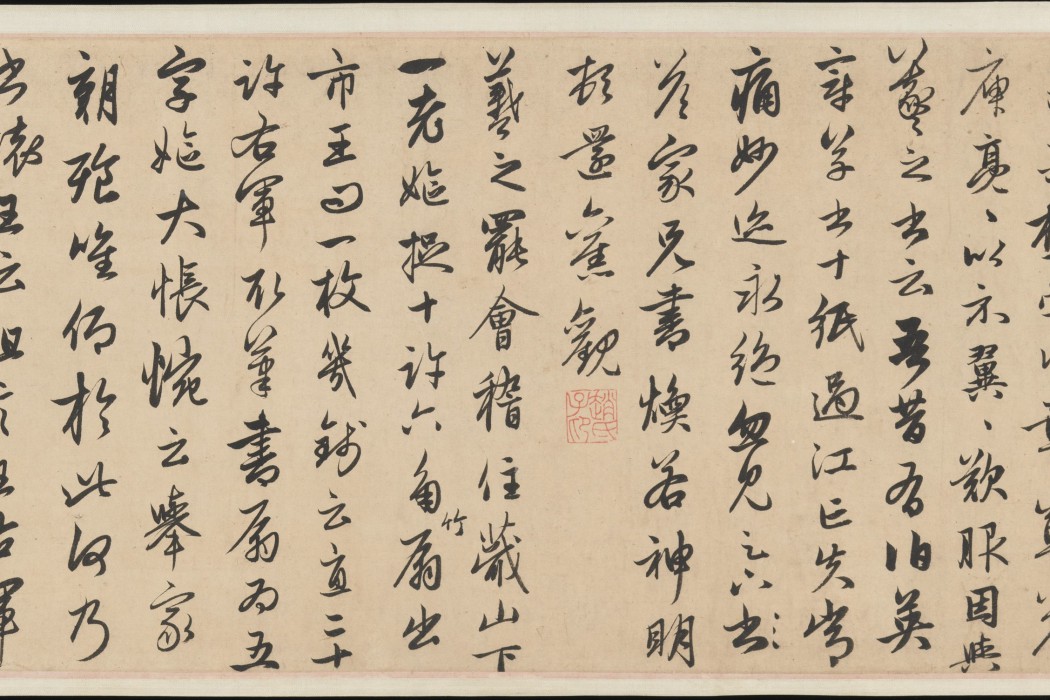 庾亮、以示翼、歎服因與
羲之書云吾昔有伯英
章草書十紙過江亡失常
痛妙迹永絕忽見足下書
答家兄書煥若神明
頓還舊觀
趙氏子昂
羲之罷會稽住蕺山下
一老嫗捉十許六角竹扇出
市王問一枚幾錢云直二十
許右軍取筆書扇為五
字嫗大悵惋云舉家
朝飱唯仰於此何乃
書壞王云但言王右軍